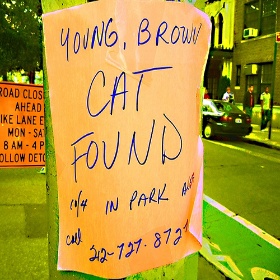 YOUNG, BROWN
CAT
FOUND
IN PARK AVE
call 212-727-8727
ROAD CLOS
AHEAD
IKE LANE
MON - SA
8 AM - 4 P
OLLOW DETO